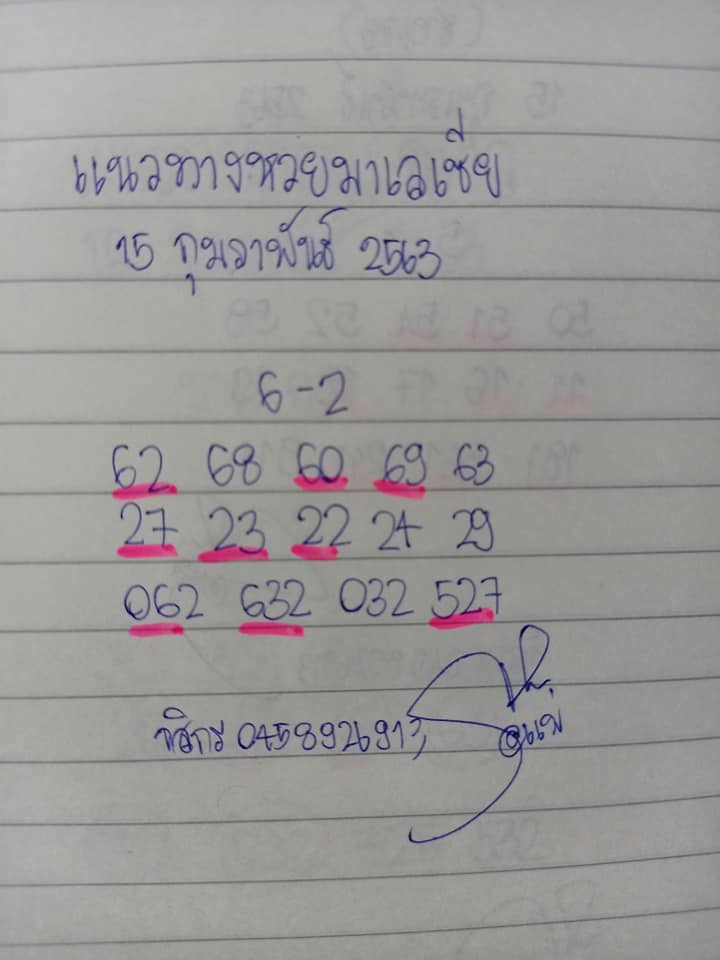 แนวทางหวยมาเลเซีย
15 กุมภาพันธ์ 2563
6-2
62 68 60 69 63
27 23 22 24 29
062 632 032 527
กสิกร 0458926913